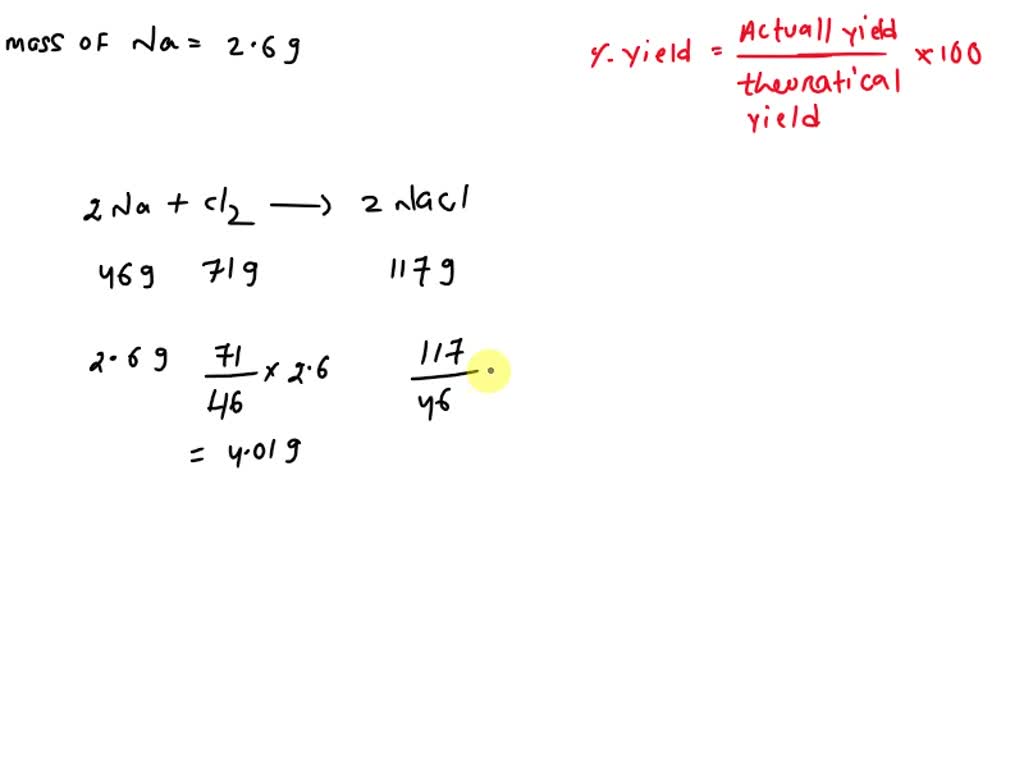 mass of Na = 2.6 g
%. yield = Actuall yield / theoratical yield × 100
2 Na + Cl2 → 2 NaCl
46 g 71 g 117 g
2.6 g 71/46 × 2.6 117/46 .
= 4.01 g